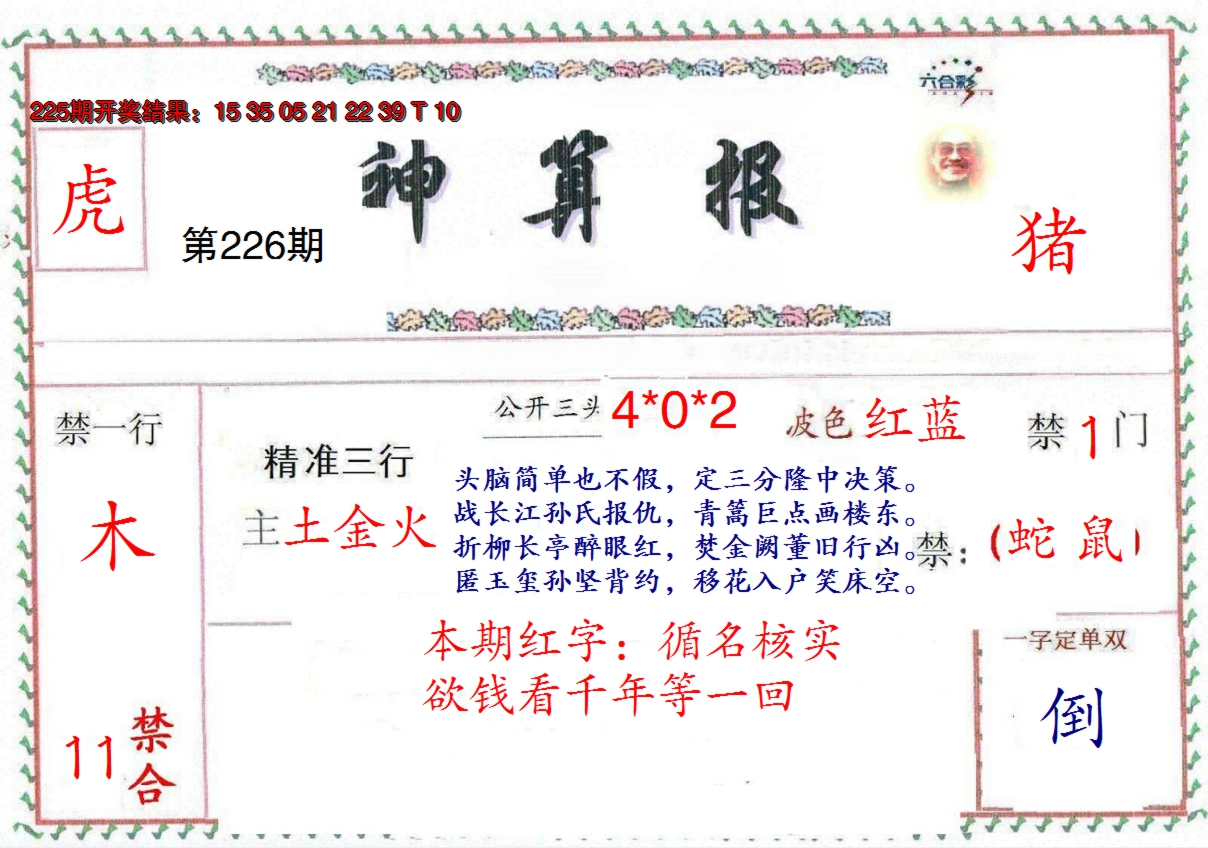 六合彩
225期开奖结果：15 35 05 21 22 39 T 10
神算报
虎
第226期
猪
禁一行
木
11 禁合
精准三行
主土金火
公开三头 4*0*2
波色 红蓝
禁1门
头脑简单也不假，定三分隆中决策。
战长江孙氏报仇，青篙巨点画楼东。
折柳长亭醉眼红，焚金阙董旧行凶。
匿玉玺孙坚背约，移花入户笑床空。
禁：（蛇 鼠）
本期红字：循名核实
欲钱看千年等一回
一字定单双
倒